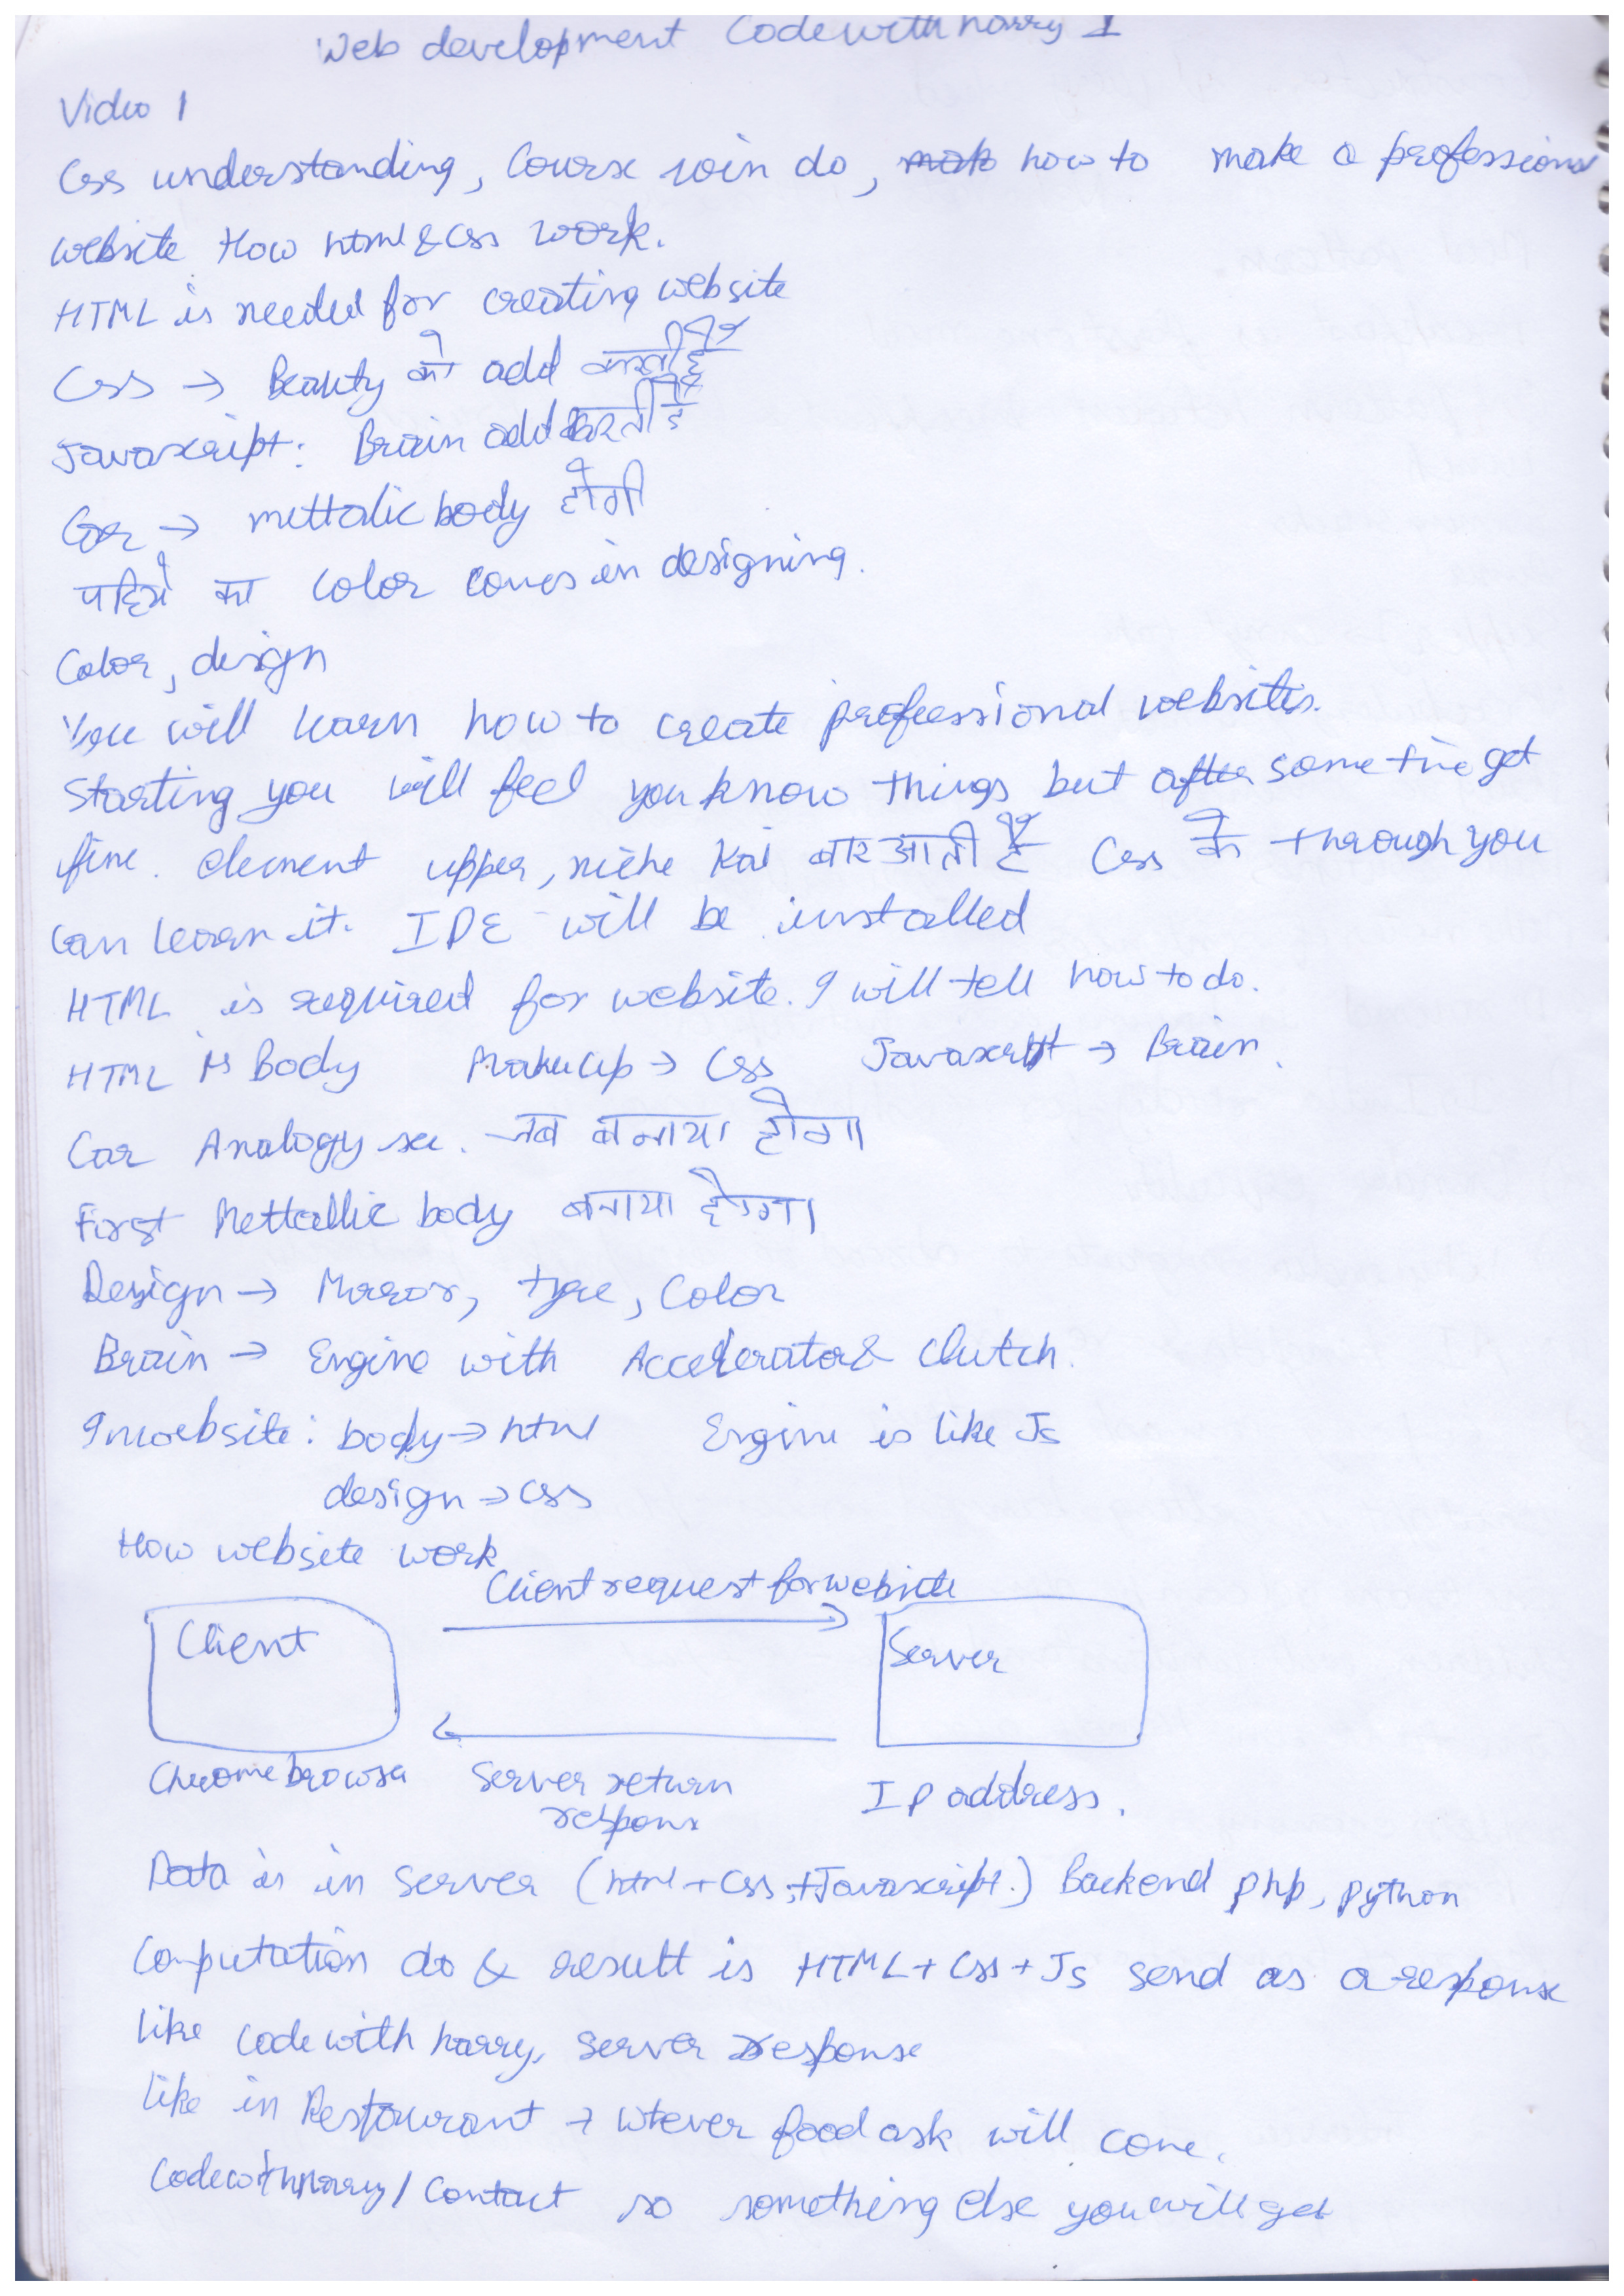 Web development Codewithharry 1
Video 1
Css understanding, Course join do, how to make a professional
website How html & css work.
HTML is needed for creating website
Css → Beauty को add करती है
Javascript: Brain add करती है
Car → mettalic body होगी
पहिये का color comes in designing.
Color, design
You will learn how to create professional websites.
Starting you will feel you know things but after some time get
fine. element upper, niche kai बार आती है Css के through you
can learn it. IDE will be installed
HTML is required for website. I will tell how to do.
HTML is Body Makeup → Css Javascript → Brain.
Car Analogy se. जब बनाया होगा
First Mettallic body बनाया होगा
Design → Mirror, tyre, Color
Brain → Engine with Accelerator & Clutch.
In website: body → html Engine is like Js
design → css
How website work
Client request for website
Client Server
Chrome browser Server return response IP address.
Data is in server (html + css + Javascript.) Backend php, python
Computation do & result is HTML + Css + Js send as a response
like code with harry, server response
like in Restaurant → wtever food ask will come.
Codewithharry / Contact so something else you will get